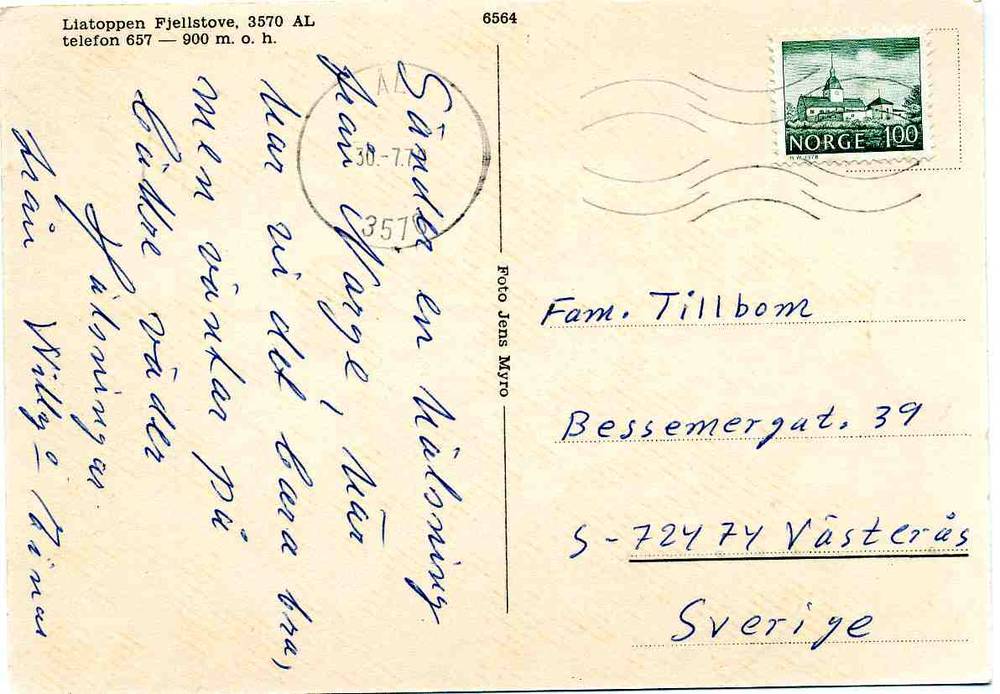 Liatoppen Fjellstove, 3570 AL
telefon 657 — 900 m. o. h.
6564
Sänder en hälsning
från Norge, här
har vi det bara bra,
men väntar på
bättre väder
Hälsningar
från Willy o
AL
30.-7.7
357
Foto Jens Myro
NORGE 100
Fam. Tillbom
Bessemergat. 39
S-724 74 Västerås
Sverige